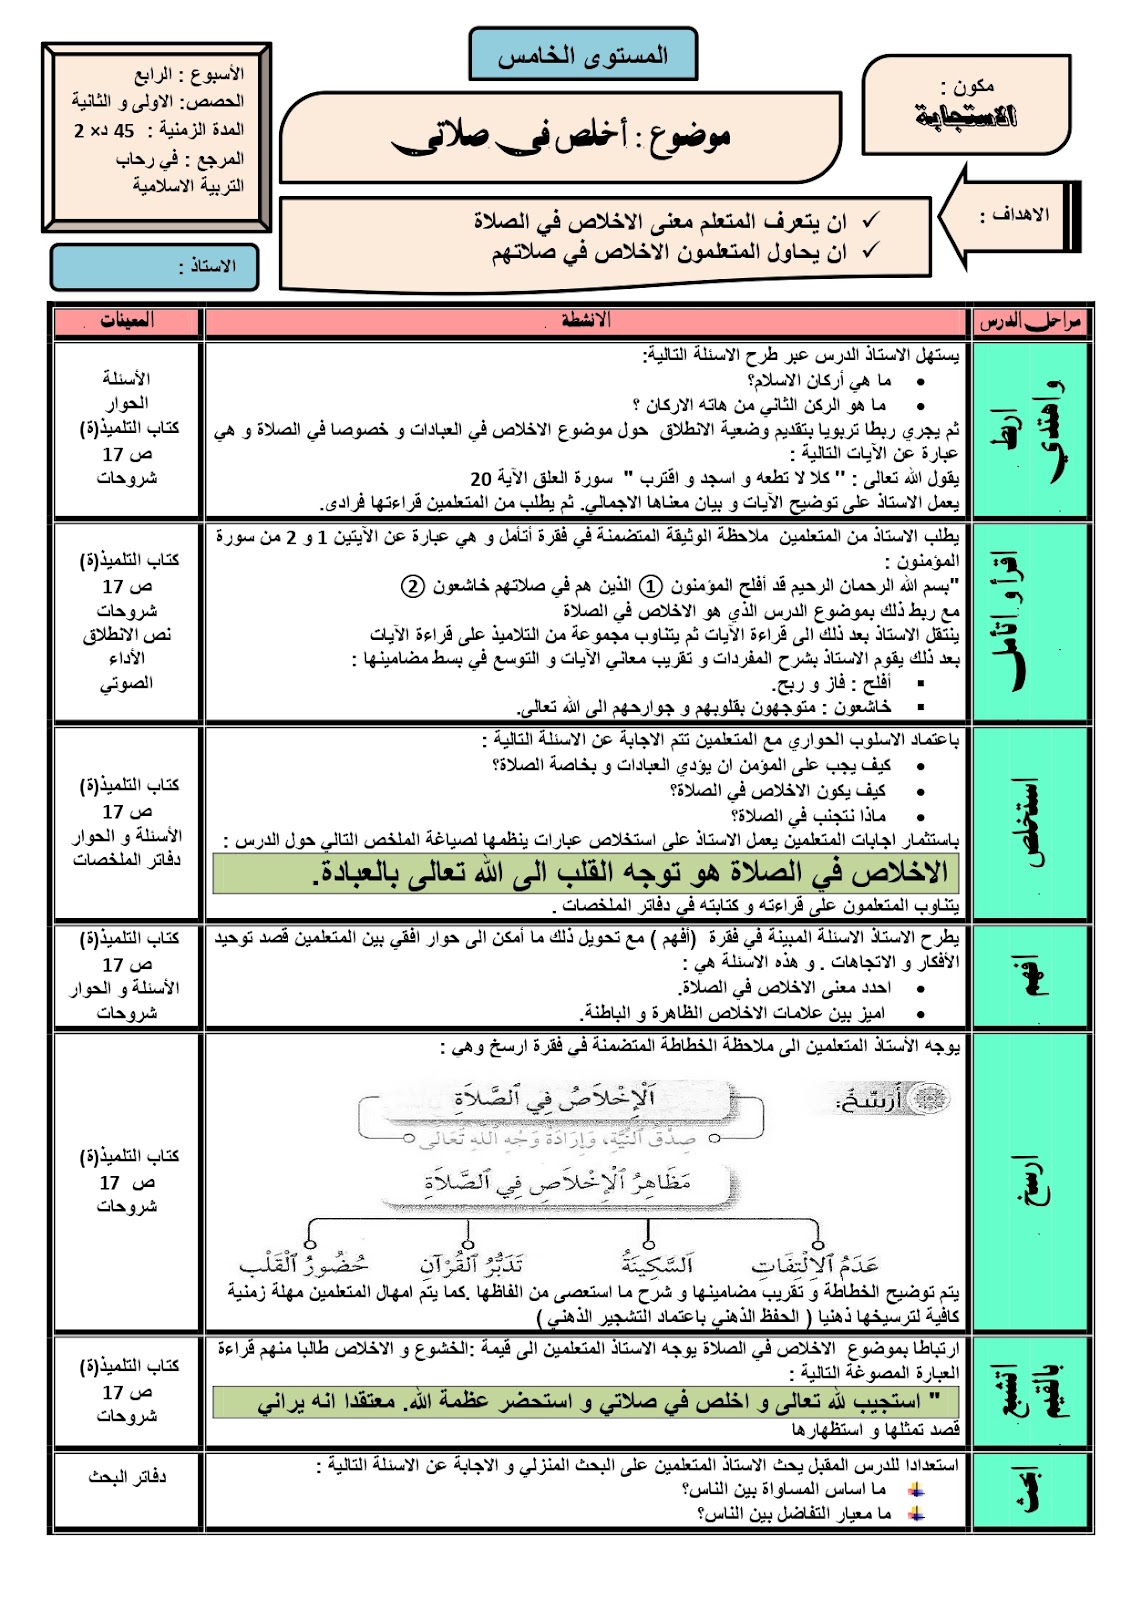 المستوى الخامس
مكون :
الاستجابة
موضوع : أخلص في صلاتي
الأسبوع : الرابع
الحصص: الاولى و الثانية
المدة الزمنية : 45 د× 2
المرجع : في رحاب
التربية الاسلامية
الاهداف :
✓ ان يتعرف المتعلم معنى الاخلاص في الصلاة
✓ ان يحاول المتعلمون الاخلاص في صلاتهم
الاستاذ :
مراحل الدرس
الانشطة
المعينات
اربط
واهتدي
يستهل الاستاذ الدرس عبر طرح الاسئلة التالية:
• ما هي أركان الاسلام؟
• ما هو الركن الثاني من هاته الاركان ؟
ثم يجري ربطا تربويا بتقديم وضعية الانطلاق حول موضوع الاخلاص في العبادات و خصوصا في الصلاة و هي
عبارة عن الآيات التالية :
يقول الله تعالى : '' كلا لا تطعه و اسجد و اقترب " سورة العلق الآية 20
يعمل الاستاذ على توضيح الآيات و بيان معناها الاجمالي. ثم يطلب من المتعلمين قراءتها فرادى.
الأسئلة
الحوار
كتاب التلميذ(ة)
ص 17
شروحات
اقرأ و اتأمل
يطلب الاستاذ من المتعلمين ملاحظة الوثيقة المتضمنة في فقرة أتأمل و هي عبارة عن الآيتين 1 و 2 من سورة
المؤمنون :
"بسم الله الرحمان الرحيم قد أفلح المؤمنون ① الذين هم في صلاتهم خاشعون ②
مع ربط ذلك بموضوع الدرس الذي هو الاخلاص في الصلاة
ينتقل الاستاذ بعد ذلك الى قراءة الآيات ثم يتناوب مجموعة من التلاميذ على قراءة الآيات
بعد ذلك يقوم الاستاذ بشرح المفردات و تقريب معاني الآيات و التوسع في بسط مضامينها :
▪ أفلح : فاز و ربح.
▪ خاشعون : متوجهون بقلوبهم و جوارحهم الى الله تعالى.
كتاب التلميذ(ة)
ص 17
شروحات
نص الانطلاق
الأداء
الصوتي
استخلص
باعتماد الاسلوب الحواري مع المتعلمين تتم الاجابة عن الاسئلة التالية :
• كيف يجب على المؤمن ان يؤدي العبادات و بخاصة الصلاة؟
• كيف يكون الاخلاص في الصلاة؟
• ماذا نتجنب في الصلاة؟
باستثمار اجابات المتعلمين يعمل الاستاذ على استخلاص عبارات ينظمها لصياغة الملخص التالي حول الدرس :
الاخلاص في الصلاة هو توجه القلب الى الله تعالى بالعبادة.
يتناوب المتعلمون على قراءته و كتابته في دفاتر الملخصات .
كتاب التلميذ(ة)
ص 17
الأسئلة و الحوار
دفاتر الملخصات
افهم
يطرح الاستاذ الاسئلة المبينة في فقرة (أفهم ) مع تحويل ذلك ما أمكن الى حوار افقي بين المتعلمين قصد توحيد
الأفكار و الاتجاهات . و هذه الاسئلة هي :
• احدد معنى الاخلاص في الصلاة.
• اميز بين علامات الاخلاص الظاهرة و الباطنة.
كتاب التلميذ(ة)
ص 17
الأسئلة و الحوار
شروحات
ارسخ
يوجه الأستاذ المتعلمين الى ملاحظة الخطاطة المتضمنة في فقرة ارسخ وهي :
أُرَسِّخُ:
اَلْإِخْلَاصُ فِي الصَّلَاةِ
صِدْقُ النِّيَّةِ، وَإِرَادَةُ وَجْهِ اللهِ تَعَالَى
مَظَاهِرُ الْإِخْلَاصِ فِي الصَّلَاةِ
عَدَمُ الِالْتِفَاتِ
اَلسَّكِينَةُ
تَدَبُّرُ الْقُرْآنِ
حُضُورُ الْقَلْبِ
يتم توضيح الخطاطة و تقريب مضامينها و شرح ما استعصى من الفاظها .كما يتم امهال المتعلمين مهلة زمنية
كافية لترسيخها ذهنيا ( الحفظ الذهني باعتماد التشجير الذهني )
كتاب التلميذ(ة)
ص 17
شروحات
اتشبع
بالقيم
ارتباطا بموضوع الاخلاص في الصلاة يوجه الاستاذ المتعلمين الى قيمة :الخشوع و الاخلاص طالبا منهم قراءة
العبارة المصوغة التالية :
" استجيب لله تعالى و اخلص في صلاتي و استحضر عظمة الله. معتقدا انه يراني
قصد تمثلها و استظهارها
كتاب التلميذ(ة)
ص 17
شروحات
ابحث
استعدادا للدرس المقبل يحث الاستاذ المتعلمين على البحث المنزلي و الاجابة عن الاسئلة التالية :
ما اساس المساواة بين الناس؟
ما معيار التفاضل بين الناس؟
دفاتر البحث